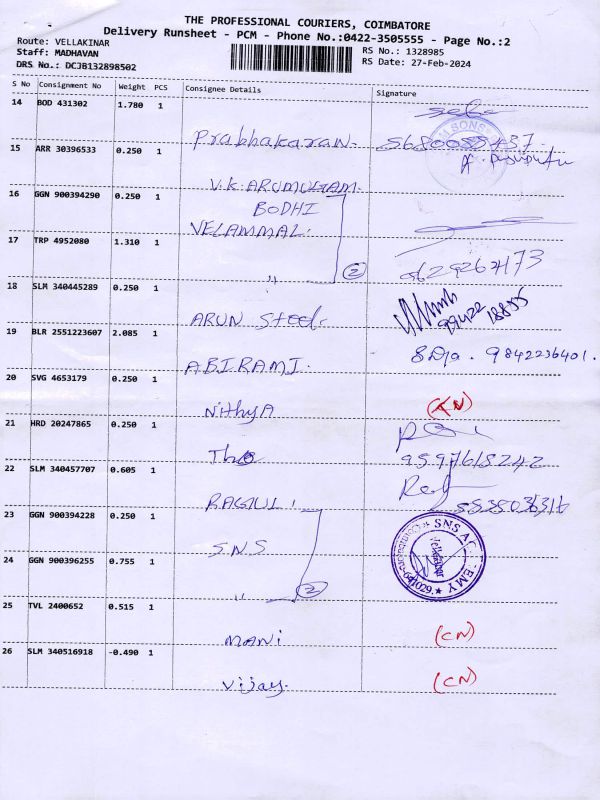 THE PROFESSIONAL COURIERS, COIMBATORE
Delivery Runsheet - PCM - Phone No.:0422-3505555 - Page No.:2
Route: VELLAKINAR
Staff: MADHAVAN
DRS No.: DCJB132898502
RS No.: 1328985
RS Date: 27-Feb-2024
S No Consignment No Weight PCS Consignee Details Signature
14 BOD 431302 1.780 1 Prabhakaran.
15 ARR 30396533 0.250 1 V.K. ARUMUGAM
16 GGN 900394290 0.250 1 BODHI
VELAMMAL.
17 TRP 4952080 1.310 1 " 2
18 SLM 340445289 0.250 1 ARUN Steel. 99422 18855
19 BLR 2551223607 2.085 1 ABIRAMI. 9842236401.
20 SVG 4653179 0.250 1 Nithya
21 HRD 20247865 0.250 1 9597618242
22 SLM 340457707 0.605 1 RAGUL.
23 GGN 900394228 0.250 1 S.N.S
24 GGN 900396255 0.755 1 " 2
SNS ACADEMY
641029.
25 TVL 2400652 0.515 1 MANi (CN)
26 SLM 340516918 -0.490 1 Vijay. (CN)